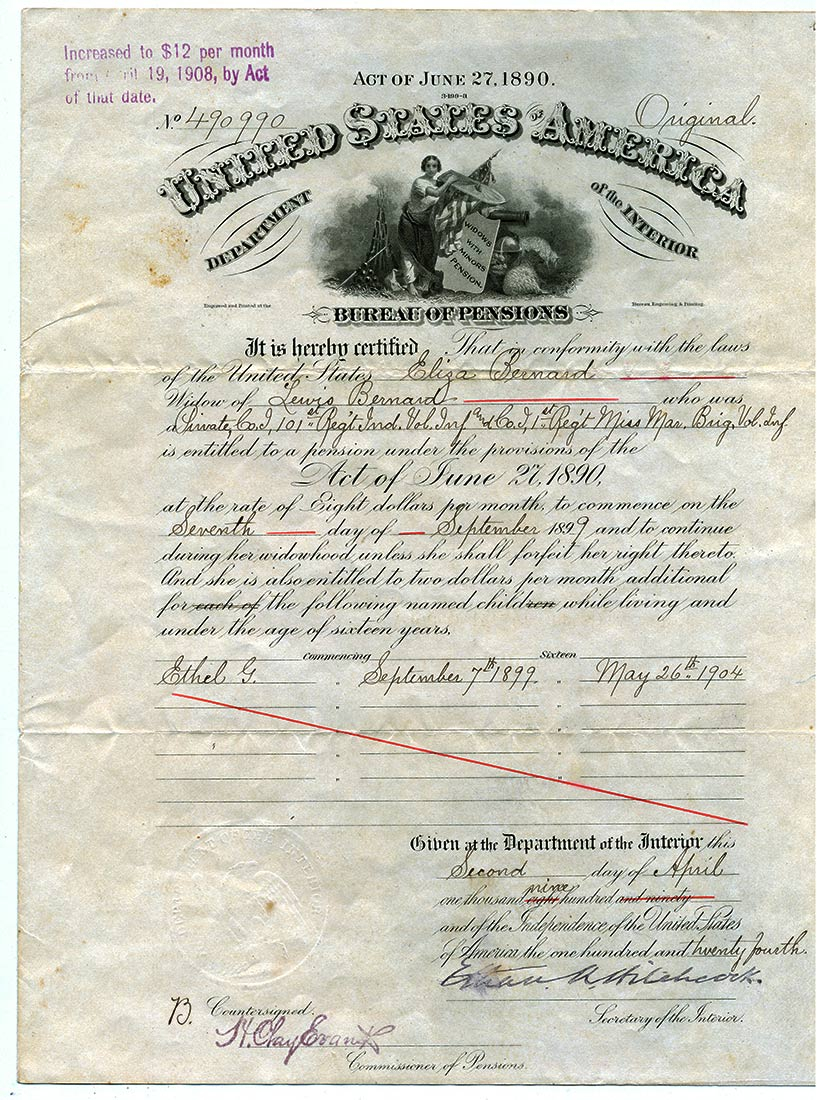 Increased to $12 per month
from April 19, 1908, by Act
of that date.
ACT OF JUNE 27, 1890.
3-190-a
No 490990
Original.
UNITED STATES OF AMERICA
DEPARTMENT of the INTERIOR
WIDOWS
WITH
MINORS
PENSION.
Engraved and Printed at the
Bureau, Engraving & Printing.
BUREAU OF PENSIONS
It is hereby certified That in conformity with the laws
of the United States Eliza Bernard
Widow of Lewis Bernard who was
a Private, Co. I, 101st Reg't Ind. Vol. Inf and Co. I, 1st Reg't Miss Mar. Brig. Vol. Inf
is entitled to a pension under the provisions of the
Act of June 27, 1890,
at the rate of Eight dollars per month, to commence on the
Seventh day of September 1899 and to continue
during her widowhood unless she shall forfeit her right thereto.
And she is also entitled to two dollars per month additional
for each of the following named children while living and
under the age of sixteen years.
Commencing Sixteen
Ethel G. " September 7th 1899 " May 26th 1904
" "
" "
Given at the Department of the Interior this
Second day of April
nine
one thousand eight hundred and ninety
and of the Independence of the United States
of America the one hundred and twenty fourth.
Ethan A. Hitchcock.
Secretary of the Interior.
B. Countersigned:
H. Clay Evans
Commissioner of Pensions.